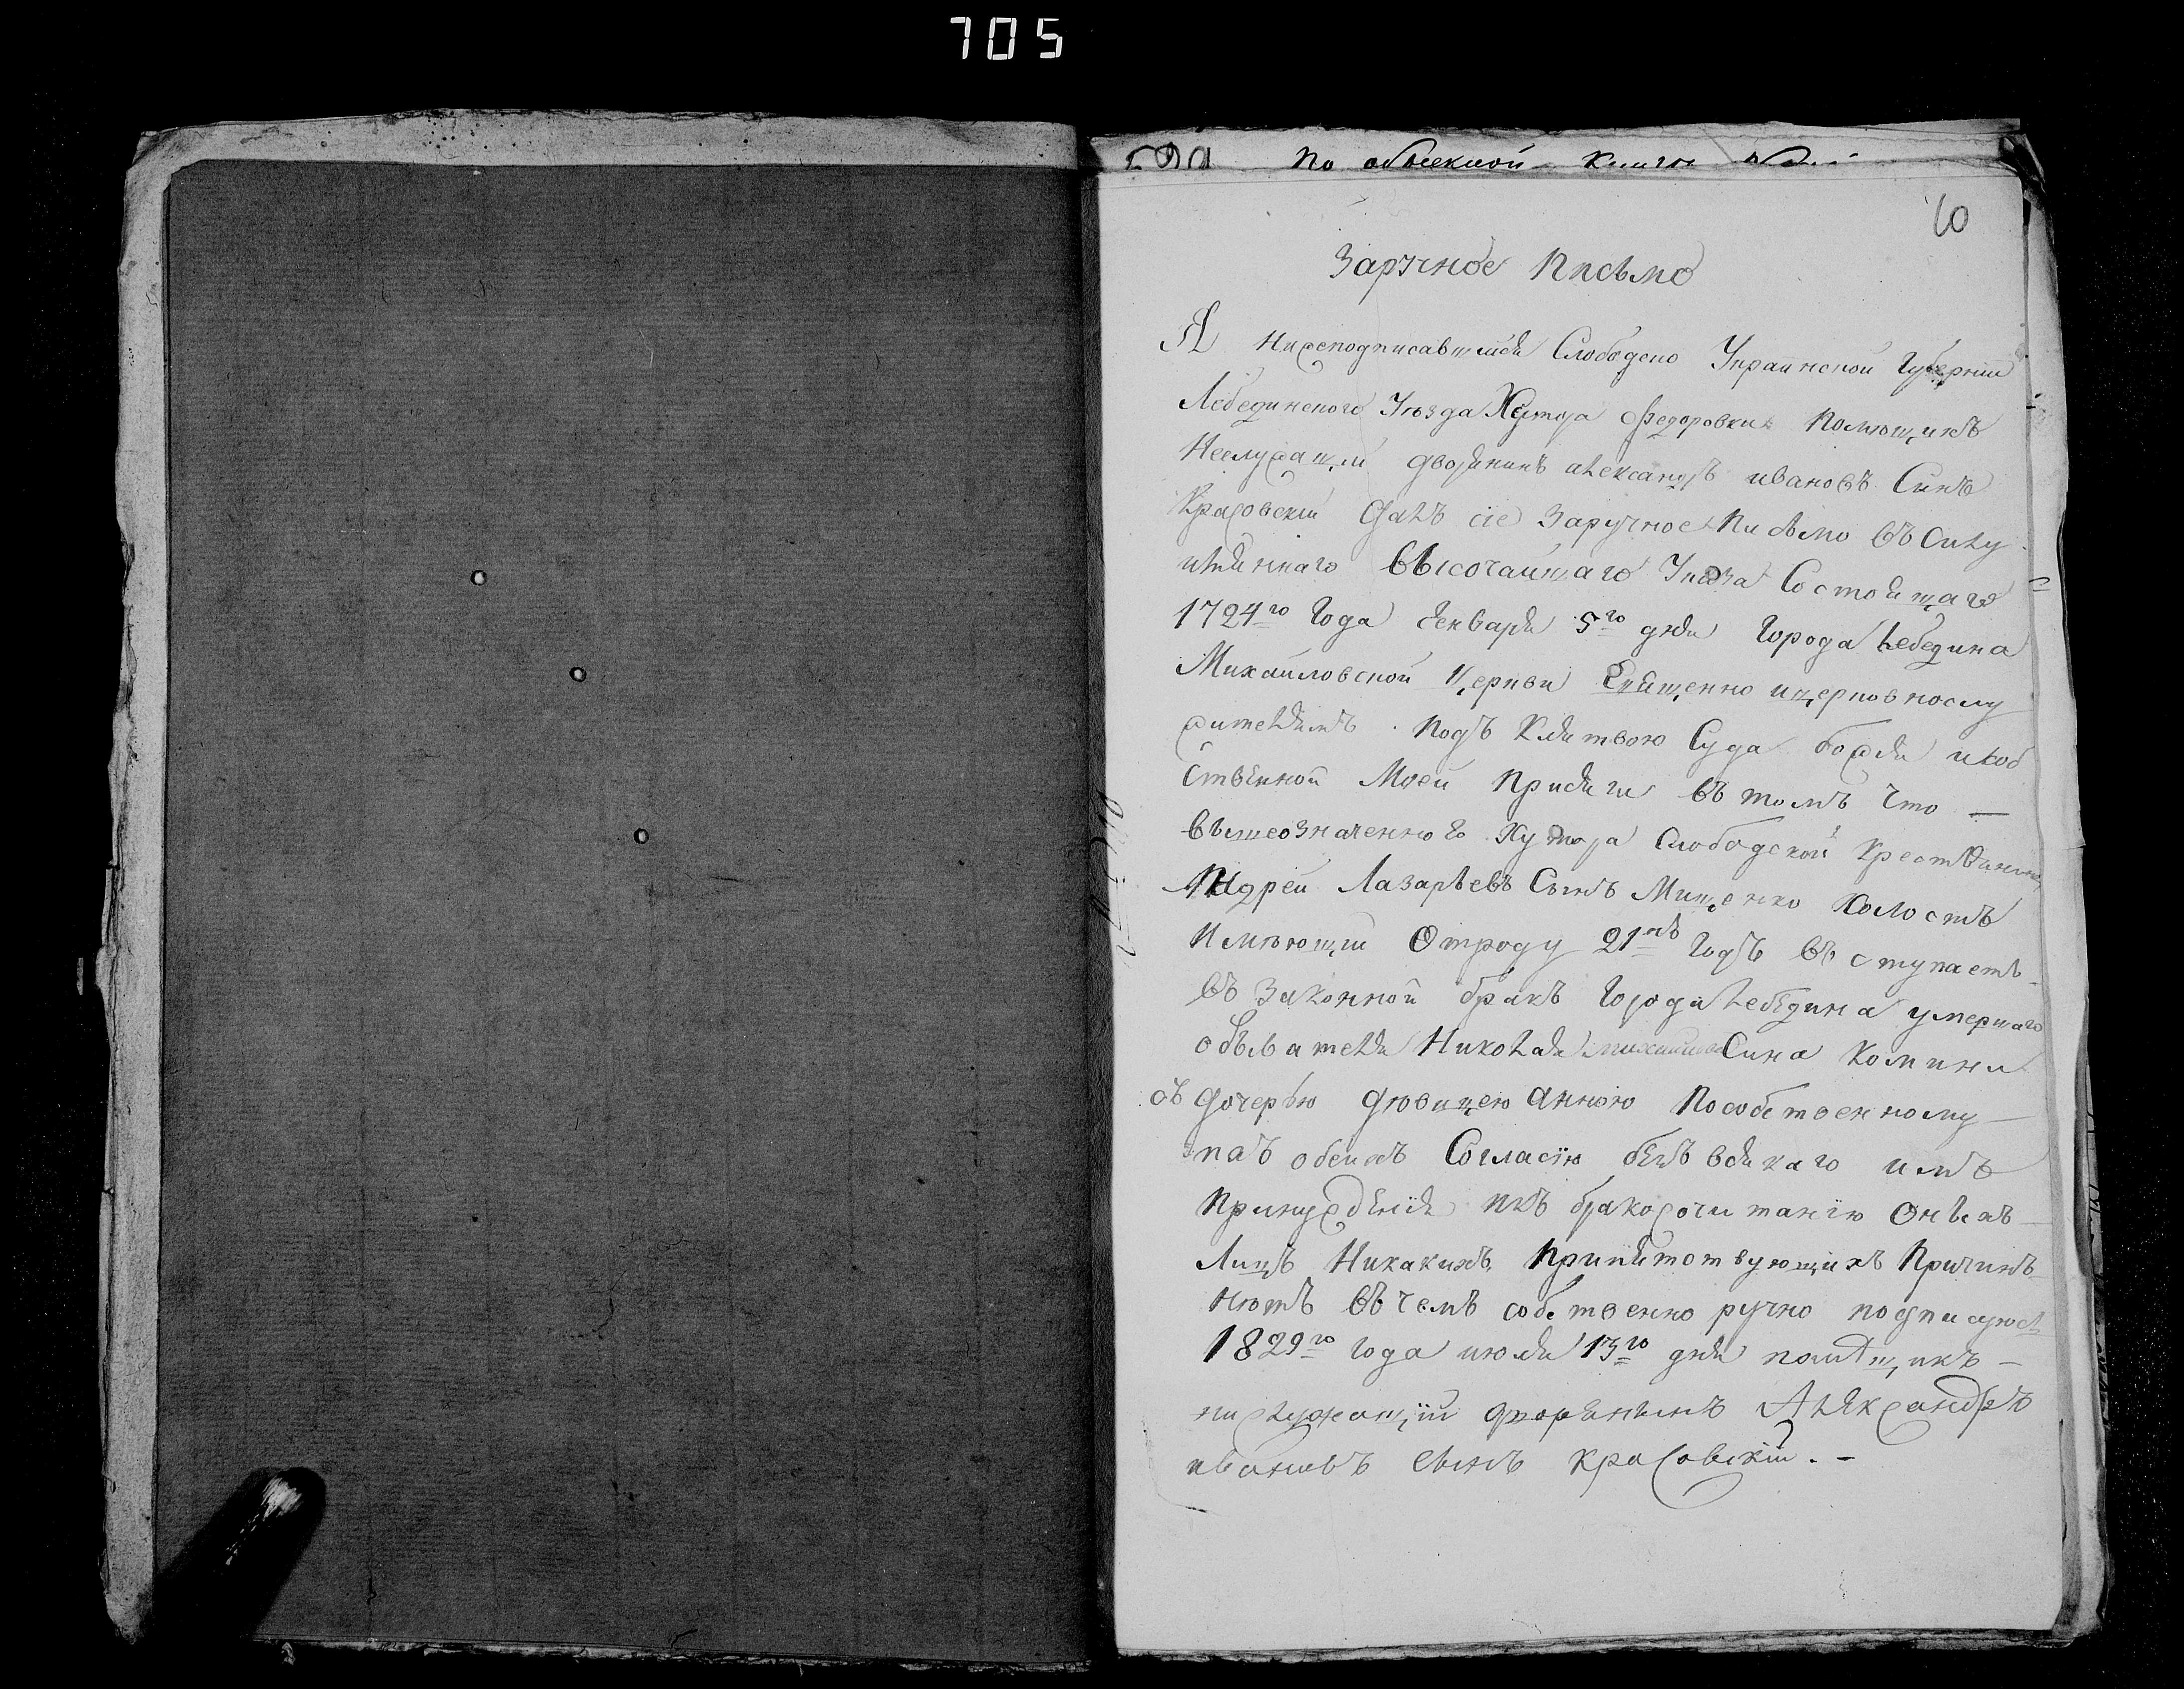 705
По обыскной книги
60
Заручное письмо
Я нижеподписавшійся Слободско Украинской Губерніи
Лебединского Уѣзда Хутора Федоровки Помѣщикъ
Неслужащій дворянинъ александръ ивановъ Синъ
Красовскій Далъ сіе Заручное Письмо въ Силу
имяннаго Высочайшаго Указа Состоящаго
1724го Года Генваря 5го дня Города Лебедина
Михайловской Церкви Священно ицерковнослу
жителямъ Подъ Клятвою Суда божія
ственной Моей присяги въ томъ Что —
вышеозначенного Хутора Слободской Крестянинъ
Андрей Лазарѣевъ Сынъ Мищенко Холостъ
Имѣющій Отроду 21нъ Годъ Вступаетъ
Въ Законной бракъ Города Лебедина умершаго
обывателя Николая михайлова Сина Комини
съ Дочерью Дѣвицею Анною Пособственному
ихъ обеихъ Согласію безъ всякаго имъ
принужденія икъ бракосочитанію Оныхъ
Лицъ Никакихъ Припятствующихъ Причинъ
Нѣтъ въ чемъ собственно ручно подписуюсь
1829го Года июля 13го дня помѣщикъ —
ни служащій дворенынъ Алѣксандръ
ивановъ сынъ красовскій. —